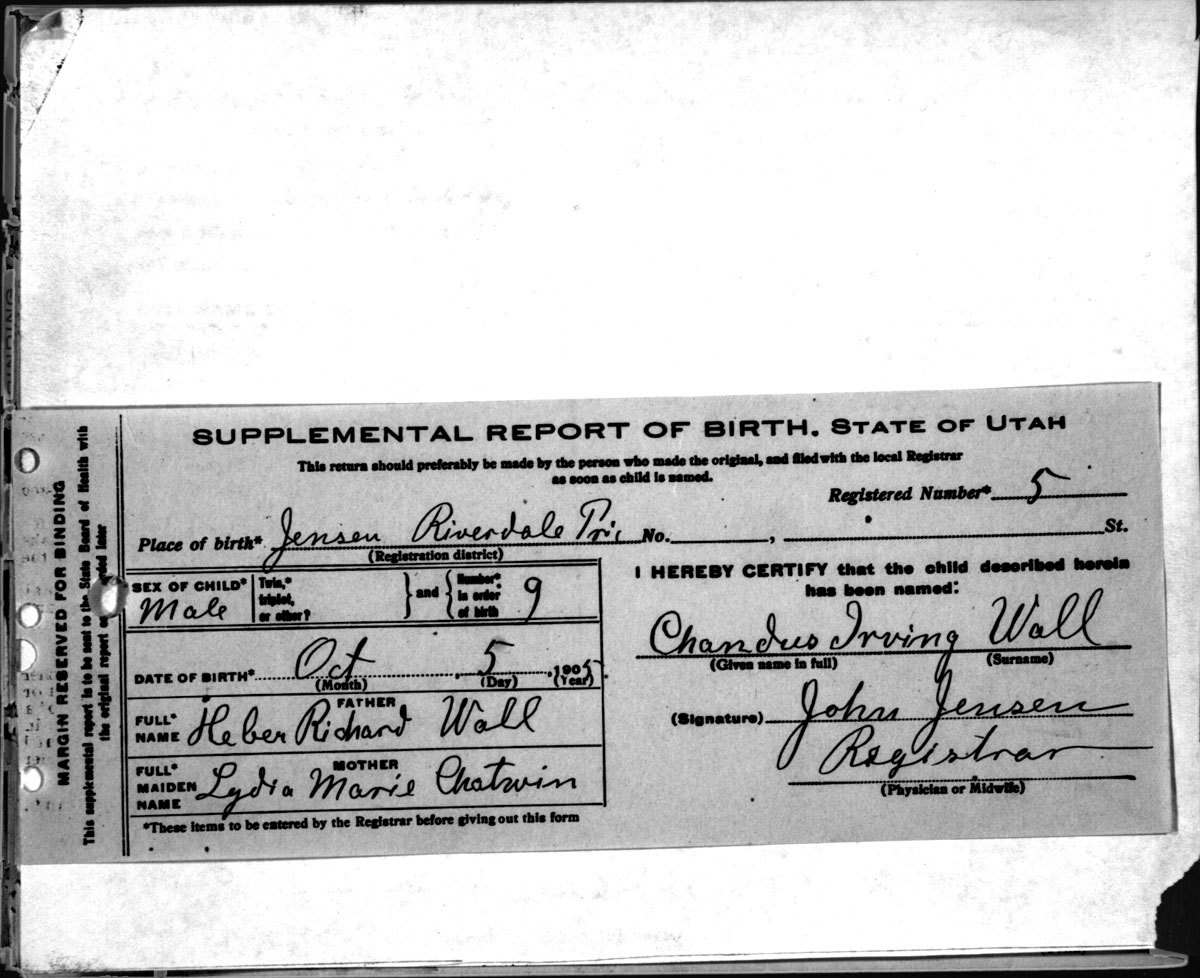 SUPPLEMENTAL REPORT OF BIRTH. STATE OF UTAH
This return should preferably be made by the person who made the original, and filed with the local Registrar
as soon as child is named.
Registered Number* 5
Place of birth* Jensen Riverdale Pri, No. , St.
(Registration district)
SEX OF CHILD*
Male
Twin,*
triplet,
or other?
and
Number*
in order
of birth
9
DATE OF BIRTH* Oct 5, 1905
(Month) (Day) (Year)
FATHER
FULL*
NAME
Heber Richard Wall
MOTHER
FULL*
MAIDEN
NAME
Lydia Marie Chatwin
*These items to be entered by the Registrar before giving out this form
I HEREBY CERTIFY that the child described herein
has been named:
Chandus Irving Wall
(Given name in full) (Surname)
(Signature) John Jensen
Registrar
(Physician or Midwife)
MARGIN RESERVED FOR BINDING
This supplemental report is to be sent to the State Board of Health with
the original report later